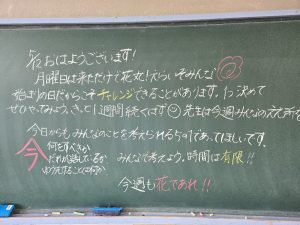 おはようございます!
月曜日は来ただけで花丸!えらいぞみんな
始まりの日だからこそチャレンジできることがあります。1つ決めて
ぜひやってみよう。きっと1週間続くはず 先生は今週みんなの
今日からもみんなのことを考えられる5の1であってほしいです。
今 何をすべきか
だれが話しているか みんなで考えよう、時間は有限!!
ゆうせんすることは何か
今週も花であれ!!